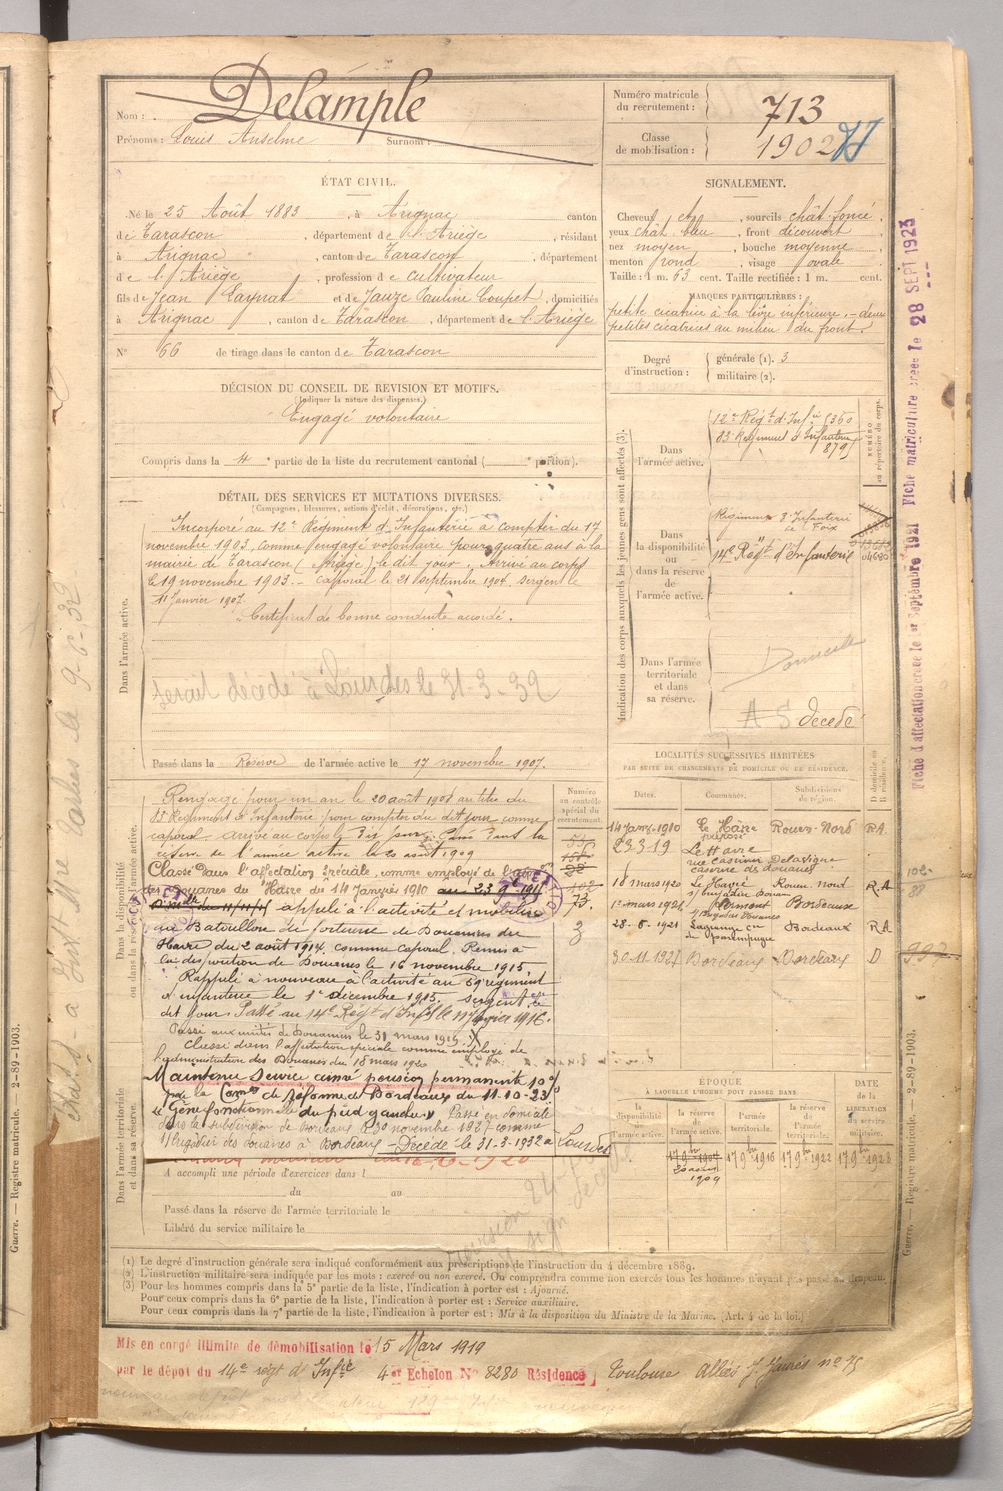 Nom : Delample
Prénoms : Louis Anselme Surnom :
Numéro matricule du recrutement : 713
Classe de mobilisation : 1902
ÉTAT CIVIL.
Né le 25 Août 1883, à Arignac canton
de Tarascon, département de l'Ariège, résidant
à Arignac, canton de Tarascon, département
de l'Ariège, profession de cultivateur
fils de Jean Laynat et de Jauze Pauline Coupet, domiciliés
à Arignac, canton de Tarascon, département de l'Ariège
N° 66 de tirage dans le canton de Tarascon
SIGNALEMENT.
Cheveux et sourcils chât. foncé
yeux chât. bleu, front découvert
nez moyen, bouche moyenne
menton rond, visage ovale
Taille : 1 m. 63 cent. Taille rectifiée : 1 m. cent.
MARQUES PARTICULIÈRES :
petite cicatrice à la lèvre inférieure, - deux
petites cicatrices au milieu du front.
Degré d'instruction : générale (1). 3
militaire (2).
DÉCISION DU CONSEIL DE REVISION ET MOTIFS.
(Indiquer la nature des dispenses.)
Engagé volontaire
Compris dans la 4e partie de la liste du recrutement cantonal ( portion).
DÉTAIL DES SERVICES ET MUTATIONS DIVERSES.
(Campagnes, blessures, actions d'éclat, décorations, etc.)
Dans l'armée active.
Incorporé au 12e Régiment d'Infanterie à compter du 17
novembre 1903, comme engagé volontaire pour quatre ans à la
mairie de Tarascon (Ariège), le dit jour. Arrivé au corps
le 19 novembre 1903. - Caporal le 21 septembre 1904. Sergent le
11 janvier 1907.
Certificat de bonne conduite accordé.
serait décédé à Lourdes le 31-3-32
Passé dans la Réserve de l'armée active le 17 novembre 1907.
Dans la disponibilité ou dans la réserve de l'armée active.
Rengagé pour un an le 20 août 1908 au titre du
83e Régiment d'Infanterie pour compter du dit jour comme
caporal - arrivé au corps le dit jour. Passé dans la
réserve de l'armée active le 20 août 1909
Classé dans l'affectation spéciale, comme employé de l'
des Douanes du Havre du 14 Janvier 1910
appelé à l'activité et mobilisé
au Bataillon de forteresse de Douaniers du
Havre du 2 août 1914, comme caporal. Remis à
la disposition de Douanes le 16 novembre 1915.
Rappelé à nouveau à l'activité au 59e régiment
d'infanterie le 1er décembre 1915. Sergent le
dit jour. Passé au 14e Régt d'Infie le 11 février 1916.
Passé aux unités de Douaniers le 31 mars 1919.
Classé dans l'affectation spéciale comme employé de
l'administration des Douanes du 18 mars 1920
Dans l'armée territoriale et dans sa réserve.
Maintenu Service armé pension permanente 10%
par la Com. de réforme de Bordeaux du 11-10-23
"Gêne fonctionnelle du pied gauche" Passe en domicile
dans la subdivision de Bordeaux le 30 novembre 1927 comme
Brigadier des Douanes à Bordeaux - Décédé le 31-3-1932 à Lourdes
A accompli une période d'exercices dans l
du au
Passé dans la réserve de l'armée territoriale le
Libéré du service militaire le
Indication des corps auxquels les jeunes gens sont affectés (3).
NUMÉRO au répertoire du corps.
Dans l'armée active.
12e Régt d'Infie 6360
83e Régiment d'Infanterie
879
Dans la disponibilité ou dans la réserve de l'armée active.
Régiment d'Infanterie
de Foix
14e Régt d'Infanterie
Dans l'armée territoriale et dans sa réserve.
Domicile
A S décédé
LOCALITÉS SUCCESSIVES HABITÉES
PAR SUITE DE CHANGEMENTS DE DOMICILE OU DE RÉSIDENCE.
Numéro au contrôle spécial du recrutement.
Dates. Communes. Subdivisions de région. D domicile ou R résidence.
14 Janv. 1910 Le Havre Rouen-Nord R.A
23-3-19 Le Havre
rue Casimir Delavigne
caserne de Douanes
18 mars 1920 Le Havre Rouen nord R.A
1er mars 1921 Bordeaux
28-6-1921 Bordeaux R.A
30-11-1927 Bordeaux Bordeaux D
73
3
993
ÉPOQUE
À LAQUELLE L'HOMME DOIT PASSER DANS
la disponibilité de l'armée active. la réserve de l'armée active. l'armée territoriale. la réserve de l'armée territoriale. DATE DE LA LIBÉRATION du service militaire.
17 9bre 1907 17 9bre 1916 17 9bre 1922 17 9bre 1928
20 août
1909
(1) Le degré d'instruction générale sera indiqué conformément aux prescriptions de l'instruction du 4 décembre 1889.
(2) L'instruction militaire sera indiquée par les mots : exercé ou non exercé. On comprendra comme non exercés tous les hommes n'ayant pas passé au drapeau.
(3) Pour les hommes compris dans la 5e partie de la liste, l'indication à porter est : Ajourné.
Pour ceux compris dans la 6e partie de la liste, l'indication à porter est : Service auxiliaire.
Pour ceux compris dans la 7e partie de la liste, l'indication à porter est : Mis à la disposition du Ministre de la Marine. (Art. 4 de la loi.)
Mis en congé illimité de démobilisation le 15 Mars 1919
par le dépôt du 14e régt d'Infie 4er Echelon N° 8280 Résidence Toulouse Allées J. Jaurès n° 75
Fiche d'affectation créée le 1er Septembre 1921 Fiche matriculaire créée le 28 SEPT 1923
Guerre. — Registre matricule. — 2-89-1903.
Guerre. — Registre matricule. — 2-89-1903.